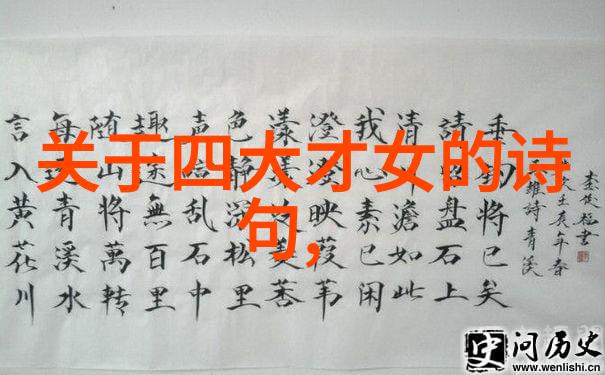 关于四大才女的诗
句,
言入黄花川
每逐青溪水
随山將萬转
趣途無百里
声喧乱石中
色静深松里
漾漾泛菱荇
澄澄映葭苇
我心素已闲
清川澹如此
請留盤石上
垂钓將已矣
王維詩青溪
问历史
www.wenlishi.cn